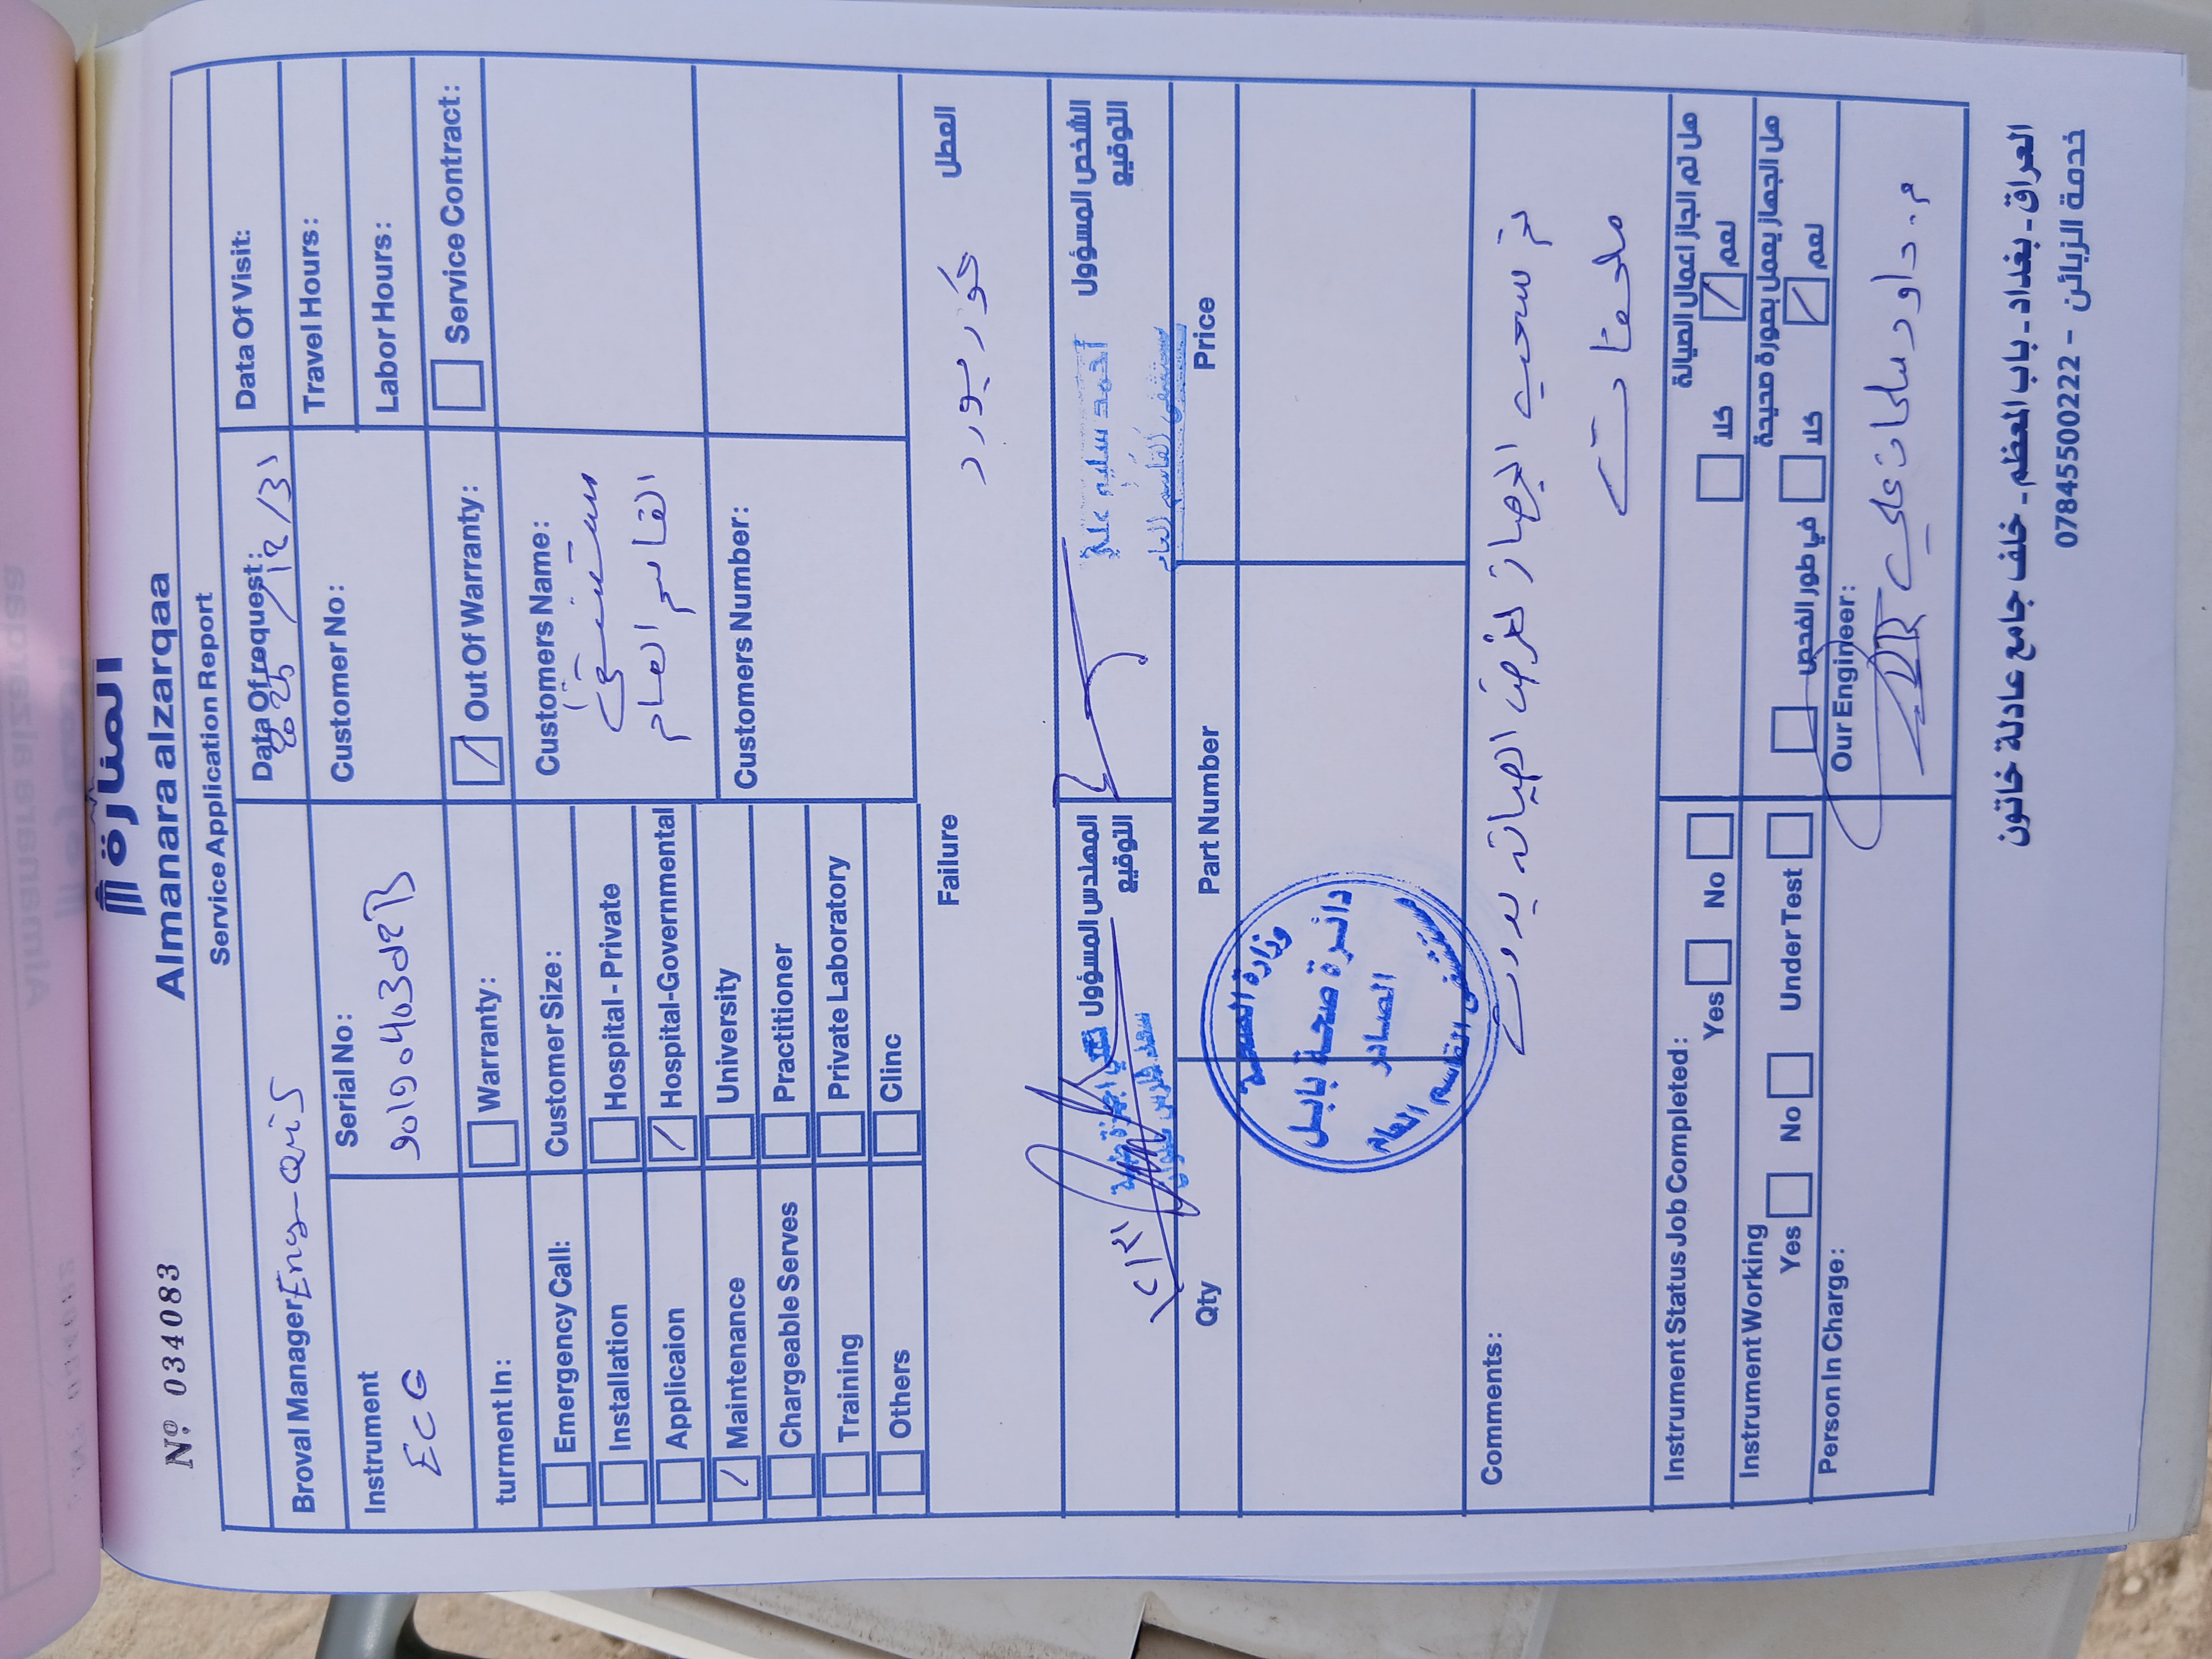 Nº 034083
المنارة
Almanara alzarqaa
Service Application Report
Broval Manager Eng-Qais
Data Of request: ١٢/٣١
Data Of Visit:
Travel Hours:
Instrument
ECG
Serial No:
Customer No:
Labor Hours:
turment In:
Warranty:
Out Of Warranty:
Service Contract:
Emergency Call:
Customer Size:
Customers Name:
مستشفى
القاسم العام
Installation
Hospital - Private
Applicaion
Hospital-Governmental
Maintenance
University
Customers Number:
Chargeable Serves
Practitioner
Training
Private Laboratory
Others
Clinc
Failure
العطل
بورد
المهندس المسؤول
التوقيع
الشخص المسؤول
التوقيع
أحمد سليم علي
مستشفى القاسم العام
١٢/٣١
Qty
Part Number
Price
وزارة الصحة
دائرة صحة بابل
الصادر
مستشفى القاسم العام
Comments:
تم سحب الجهاز لغرض الصيانه بدون
ملحقات
Instrument Status Job Completed:
Yes
No
هل تم انجاز اعمال الصيانة
كلا
نعم
Instrument Working
Yes
No
Under Test
هل الجهاز يعمل بصورة صحيحة
في طور الفحص
كلا
نعم
Person In Charge:
Our Engineer:
م. داود سلمان علي
العراق - بغداد - باب المعظم - خلف جامع عادلة خاتون
خدمة الزبائن - 07845500222